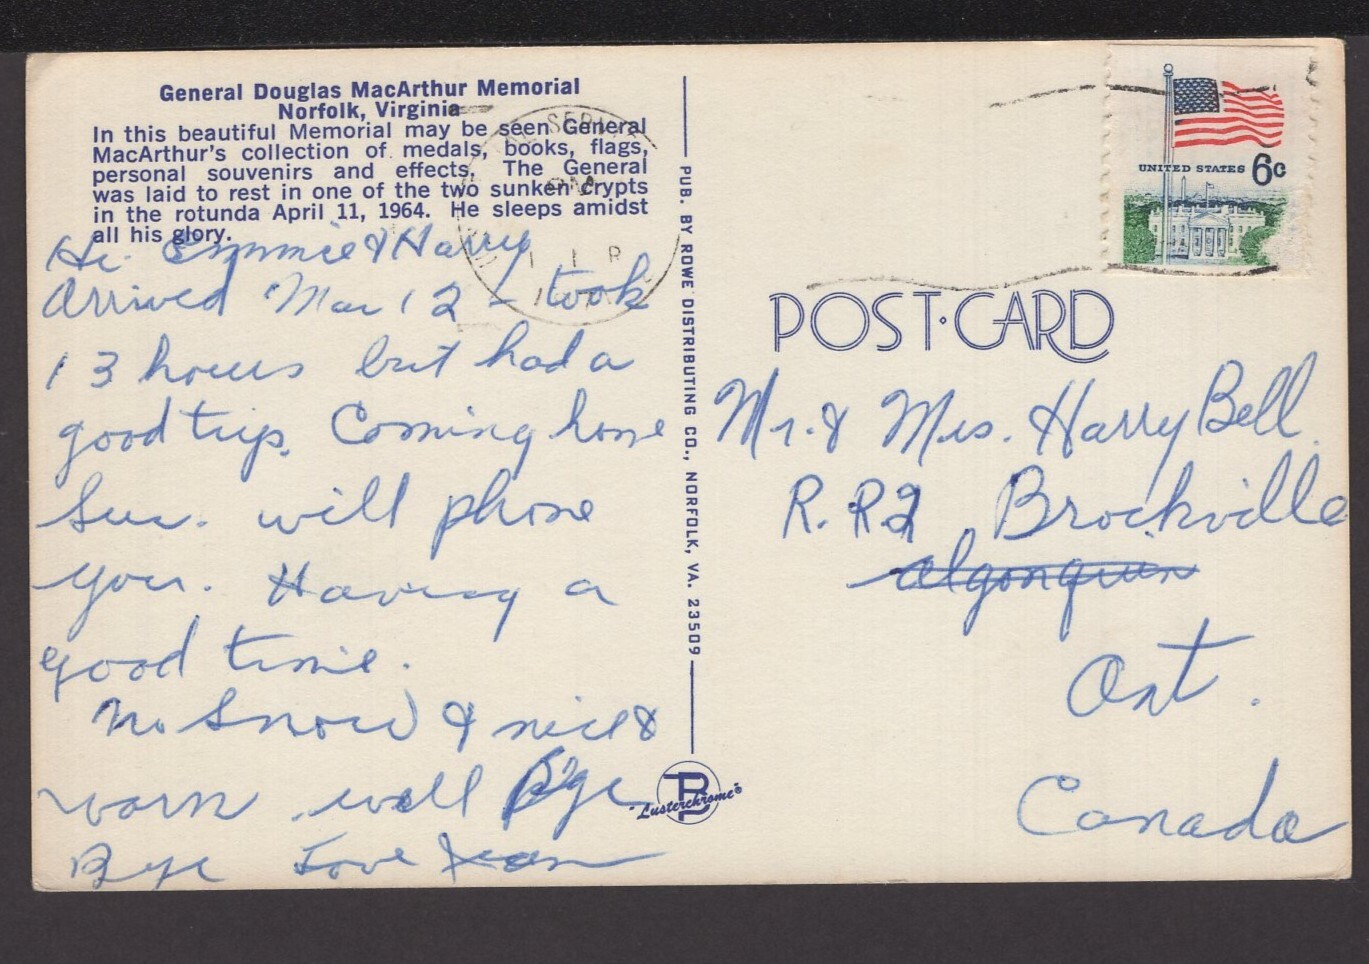 General Douglas MacArthur Memorial
Norfolk, Virginia
In this beautiful Memorial may be seen General
MacArthur's collection of medals, books, flags,
personal souvenirs and effects. The General
was laid to rest in one of the two sunken crypts
in the rotunda April 11, 1964. He sleeps amidst
all his glory.
Hi Emmie & Harry
Arrived Mar 12 - took
13 hours but had a
good trip. Coming home
Sun. will phone
you. Having a
good time.
No Snow & nice &
warm well Bye
Bye Love Jean
PUB. BY ROWE DISTRIBUTING CO., NORFOLK, VA. 23509
"Lusterchrome"®
UNITED STATES 6c
POST·CARD
Mr. & Mrs. Harry Bell.
R. R2 Brockville
Algonquin
Ont.
Canada